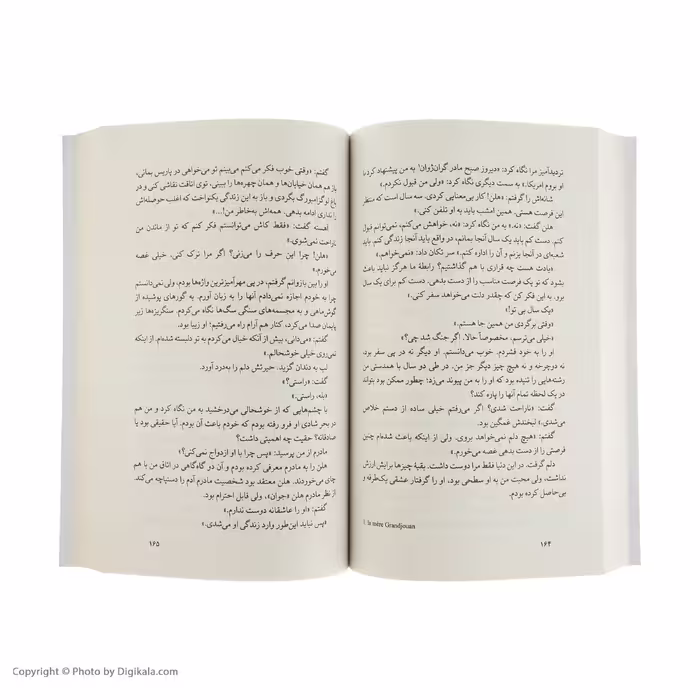 تردیدآمیز مرا نگاه کرد: «دیروز صبح مادر گران‌ژوان۱ به من پیشنهاد کرد با
او بروم امریکا.» به سمت دیگری نگاه کرد: «ولی من قبول نکردم.»
شانه‌اش را گرفتم: «هلن! کار بی‌معنایی کردی. سه سال است که منتظر
این فرصت هستی. همین امشب باید به او تلفن کنی.»
هلن گفت: «نه.» به من نگاه کرد: «نه، خواهش می‌کنم، نمی‌توانم قبول
کنم. دست کم باید یک سال آنجا بمانم، در واقع باید آنجا زندگی کنم. باید
شعبه‌ای در آنجا بزنم و آن را اداره کنم.» سر تکان داد: «نمی‌خواهم.»
«یادت هست چه قراری با هم گذاشتیم؟ رابطهٔ ما هرگز نباید باعث
بشود که تو یک فرصت مناسب را از دست بدهی. دست کم برای یک سال
برو. به این فکر کن که چقدر دلت می‌خواهد سفر کنی.»
«یک سال بی تو!»
«وقتی برگردی من همین جا هستم.»
«خیلی می‌ترسم. مخصوصاً حالا. اگر جنگ شد چی؟»
او را به خود فشردم. خوب می‌دانستم. او دیگر نه در پی سفر بود،
نه دوچرخه و نه هیچ چیز دیگر جز من. در طی دو سال با همدستی من
رشته‌هایی را تنیده بود که او را به من پیوند می‌زد؛ چطور ممکن بود بتواند
در یک لحظه تمام آنها را پاره کند؟
گفت: «ناراحت شدی؟ اگر می‌رفتم خیلی ساده از دستم خلاص
می‌شدی.» لبخندش غمگین بود.
گفتم: «هیچ دلم نمی‌خواهد بروی. ولی از اینکه باعث شده‌ام چنین
فرصتی را از دست بدهی غصه می‌خورم.»
دلم گرفت. در این دنیا فقط مرا دوست داشت. بقیهٔ چیزها برایش ارزش
نداشت، ولی محبت من به او سطحی بود، او را گرفتار عشقی یک‌طرفه و
بی‌حاصل کرده بودم.
1. la mère Grandjouan
۱۶۴
گفتم: «وقتی خوب فکر می‌کنم می‌بینم تو می‌خواهی در پاریس بمانی،
باز هم همان خیابان‌ها و همان چهره‌ها را ببینی، توی اتاقت نقاشی کنی و در
باغ لوگزامبورگ بگردی و باز به این زندگی یکنواخت که اغلب حوصله‌اش
را نداری ادامه بدهی. همه‌اش به‌خاطر من!...»
گفت: «فقط کاش می‌توانستم فکر کنم که تو از ماندن من
ناراحت نمی‌شوی.»
«هلن! چرا این حرف را می‌زنی؟ اگر مرا ترک کنی، خیلی غصه
می‌خورم.»
او را بین بازوانم گرفتم، در پی مهرآمیزترین واژه‌ها بودم، ولی نمی‌دانستم
چرا به خودم اجازه نمی‌دادم آنها را به زبان آورم. به گورهای پوشیده از
گوش‌ماهی و به مجسمه‌های سنگی سگ‌ها نگاه کردم. سنگریزه‌ها زیر
پایمان صدا می‌کرد، کنار هم آرام راه می‌رفتیم؛ او زیبا بود.
گفتم: «می‌دانی، بیش از آنکه خیال می‌کردم به تو دلبسته شده‌ام. از اینکه
نمی‌روی خیلی خوشحالم.»
لب به دندان گزید. حیرتش دلم را به‌درد آورد.
گفت: «راستی؟»
«بله، راستی.»
با چشم‌هایی که از خوشحالی می‌درخشید به من نگاه کرد و من هم
در بحر شادی او فرو رفته بودم که خودم باعث آن بودم. آیا حقیقی بود یا
صادقانه؟ حقیقت چه اهمیتی داشت؟
مادرم از من پرسید: «پس چرا با او ازدواج نمی‌کنی؟»
هلن را به مادرم معرفی کرده بودم و آن دو گاه‌گاهی در اتاق من با هم
چای می‌خوردند. هلن معتقد بود شخصیت مادرم آدم را دستپاچه می‌کند.
از نظر مادرم هلن «جوان»، ولی قابل احترام بود.
گفتم: «او را عاشقانه دوست ندارم.»
«پس نباید این‌طور وارد زندگی او می‌شدی.»
۱۶۵
Copyright © Photo by Digikala.com